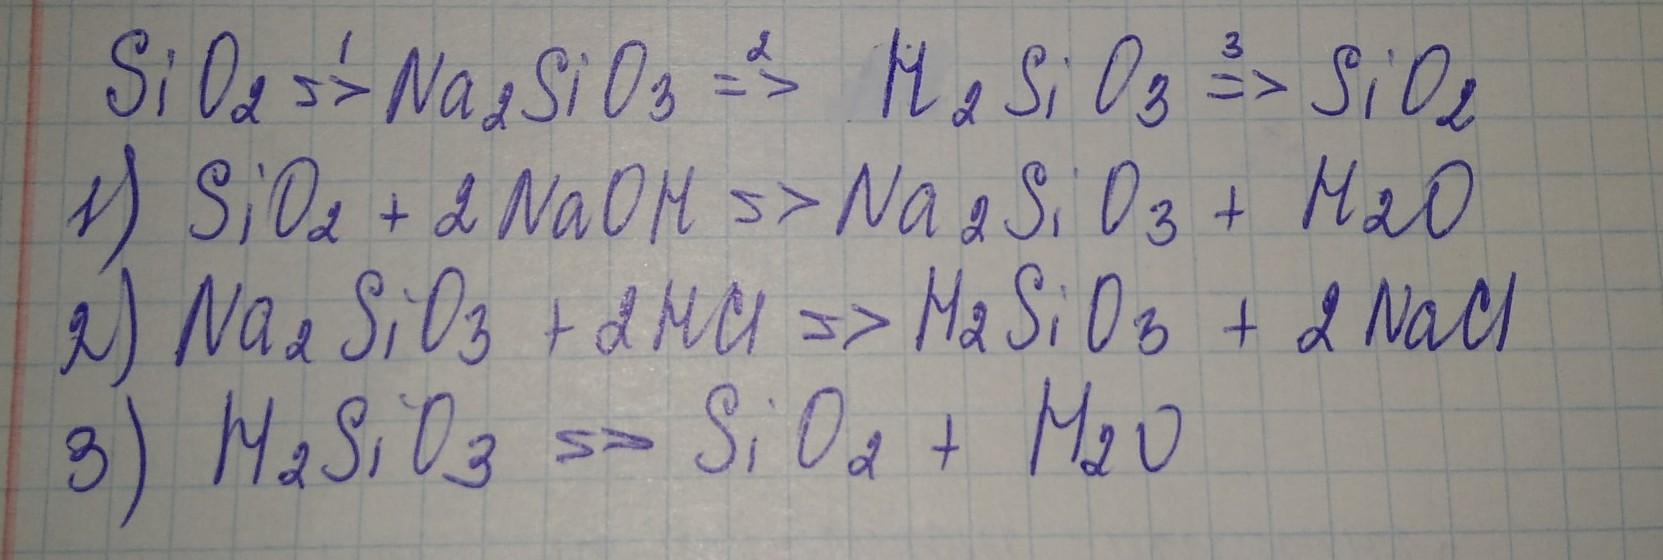 SiO2 =>1 Na2SiO3 =>2 H2SiO3 =>3 SiO2
1) SiO2 + 2NaOH => Na2SiO3 + H2O
2) Na2SiO3 + 2HCl => H2SiO3 + 2NaCl
3) H2SiO3 => SiO2 + H2O